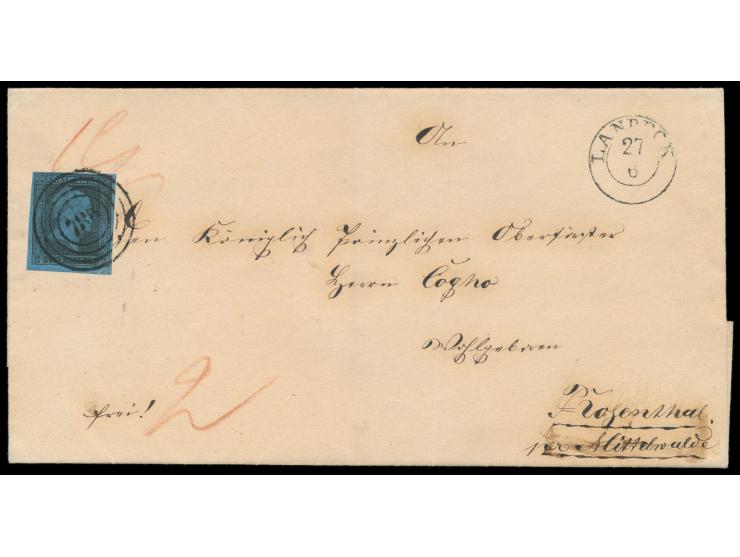 An
LANDECK
27
6
den Königlich Prinzlichen Oberförster
Herrn Cogho
Wohlgeboren
frei!
2
Rosenthal.
per Mittelwalde